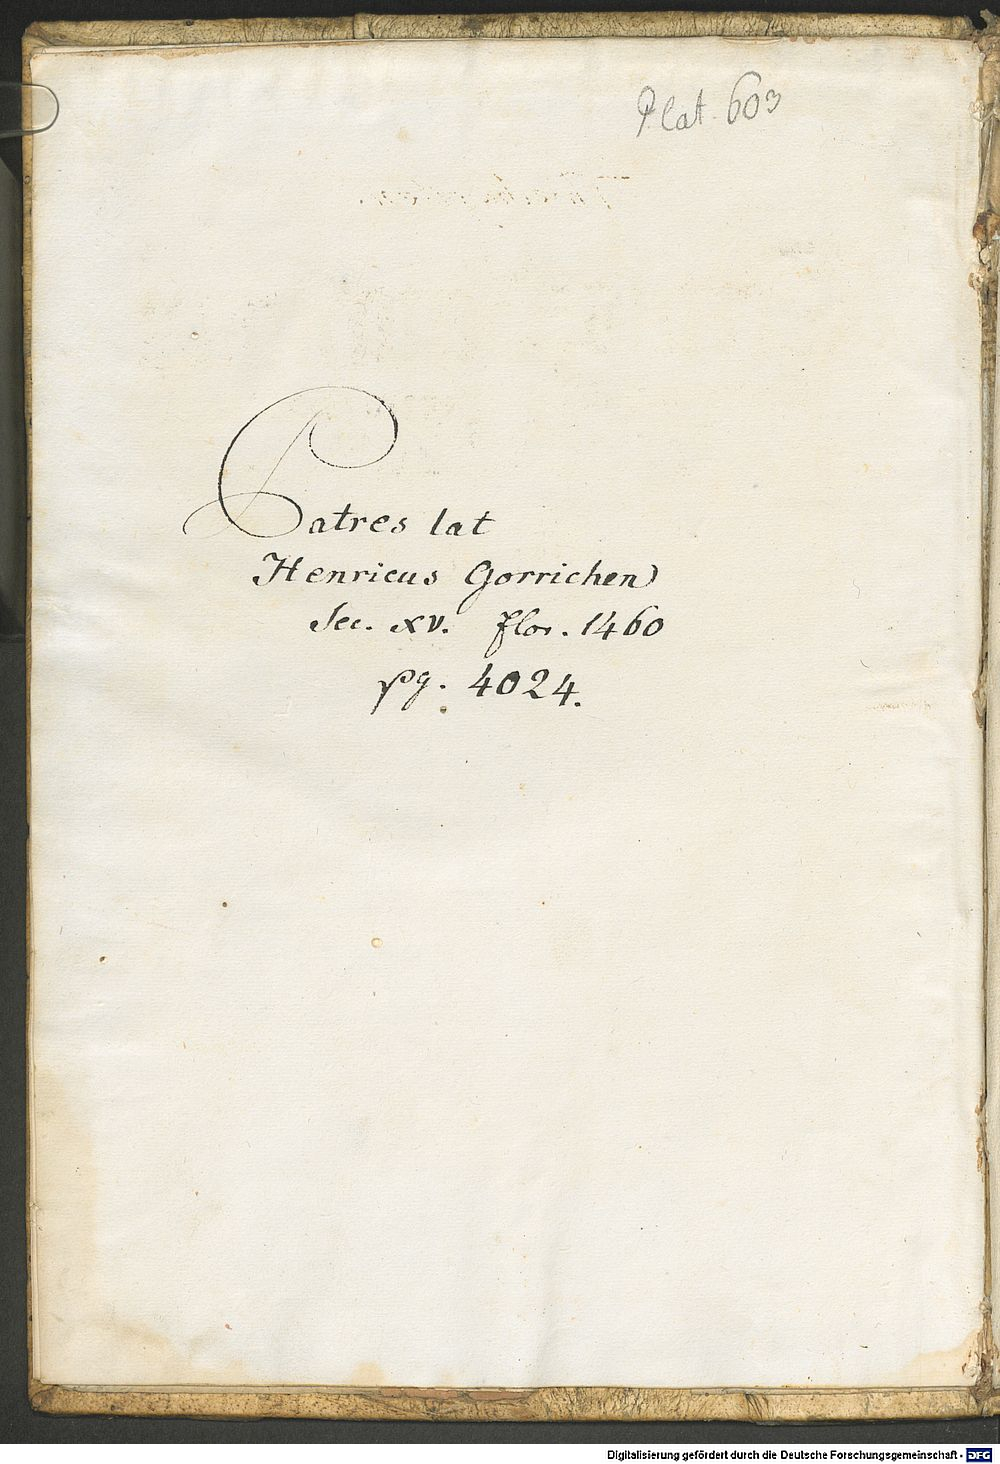 P lat. 603
Patres lat
Henricus Gorrichen
Sec. XV. flor. 1460
pg. 4024.
Digitalisierung gefördert durch die Deutsche Forschungsgemeinschaft - DFG